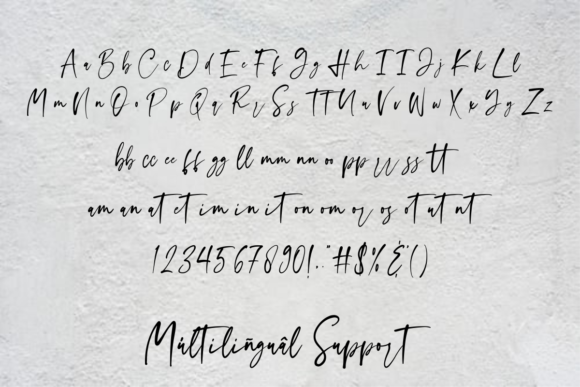 A a B b C c D d E e F f G g H h I I J j K k L l
M m N n O o P p Q q R r S s T T U u V v W w X x Y y Z z
bb cc ee ff gg ll mm nn oo pp rr ss tt
am an at et im in it on om or os ot ut nt
1234567890!.." #$%&'()
Múltilinguâl Support